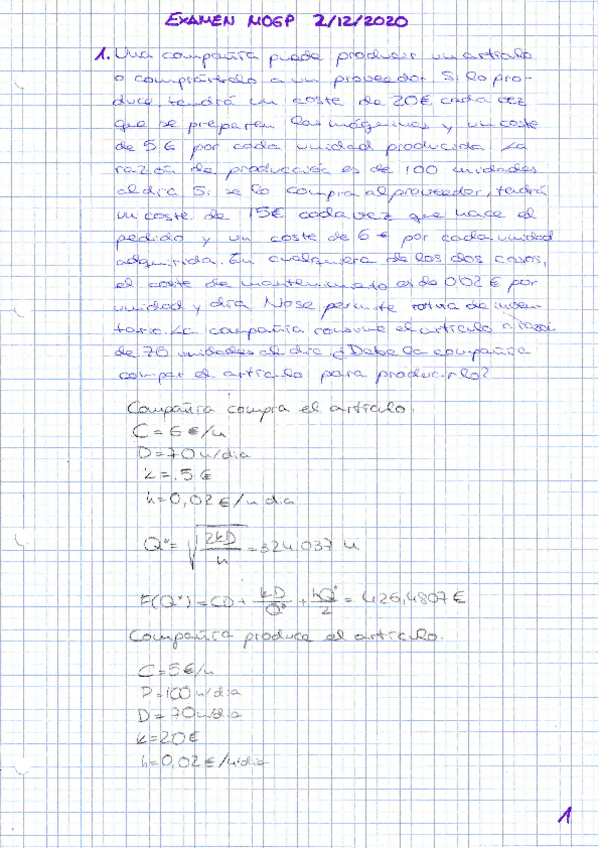 EXAMEN MOGP 2/12/2020
1. Una compañía puede producir un artículo
o comprárselo a un proveedor. Si lo pro-
duce, tendrá un coste de 20€ cada vez
que se preparen las máquinas y un coste
de 5€ por cada unidad producida. La
razón de producción es de 100 unidades
al día. Si se lo compra al proveedor, tendrá
un coste de 15€ cada vez que hace el
pedido y un coste de 6€ por cada unidad
adquirida. En cualquiera de los dos casos,
el coste de mantenimiento es de 0'02€ por
unidad y día. No se permite rotura de inven-
tario. La compañía consume el artículo a razón
de 70 unidades al día ¿Debe la compañía
comprar el artículo para producirlo?
Compañía compra el artículo.
C = 6€/u
D = 70 u/día
k = 15€
h = 0,02€/u día
Q* = √(2kD/h) = 324,037 u
F(Q*) = CD + kD/Q* + hQ*/2 = 426,4807€
Compañía produce el artículo.
C = 5€/u
P = 100 u/día
D = 70 u/día
k = 20€
h = 0,02€/u día
1